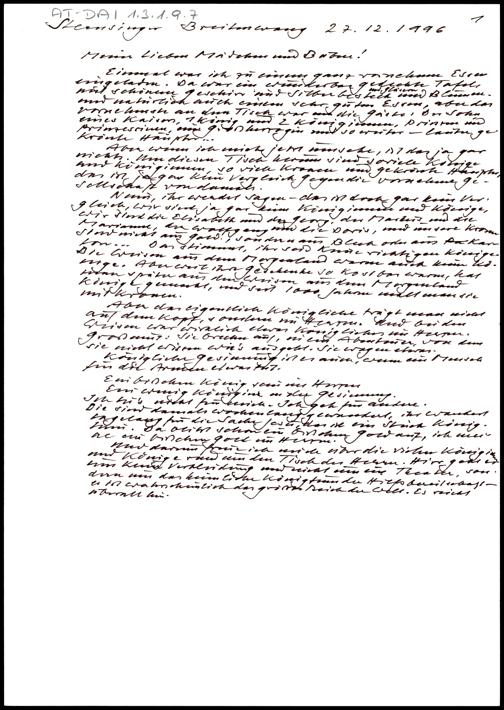 AT-DAI 1.3.1.9.7
1
Sternsinger Breitenwang 27.12.1996
Meine lieben Mädchen und Buben!
Einmal war ich zu einem ganz vornehmen Essen
eingeladen. Da war ein wunderbar gedeckte Tafel,
mit schönem Geschirr und Silberbesteck und Blumen.
und natürlich auch einem sehr guten Essen, aber das
vornehmste an dem Tisch war um die Gäste: der Sohn
eines Kaisers, 1 König und 2 Königinnen, Prinzen und
Prinzessinnen, ein Grossherzog und so weiter - lauter ge-
krönte Häupter...
Aber wenn ich mich jetzt umsehe, ist das ja gar
nichts. Um diesen Tisch herum sind so viele Könige
und Königinnen, so viele Kronen und gekrönte Häupter,
das ist gar kein Vergleich gegen die vornehme Ge-
sellschaft von damals.
Nun, ihr werdet sagen - das ist doch gar kein Ver-
gleich, wir sind ja gar keine Königinnen und Könige,
wir sind die Elisabeth und der Georg, der Markus und die
Marianne, der Wolfgang und die Doris, und unsere Kronen
sind nicht aus Gold, sondern aus Blech oder aus Kar-
ton... Das stimmt, ihr seid keine richtigen Könige.
Die Weisen aus dem Morgenland waren auch keine Kö-
nige. Aber weil ihre Geschenke so kostbar waren, hat
man später aus den Weisen aus dem Morgenland
Könige gemacht, und seit 1000 Jahren malt man sie
mit Kronen.
Aber das eigentlich Königliche trägt man nicht
auf dem Kopf, sondern im Herzen. Und bei den
Weisen war wirklich etwas Königliches im Herzen.
Grossmut: Sie brechen auf, in ein Abenteuer, von dem
sie nicht wissen wie's ausgeht. Sie wagen etwas.
Königliche Gesinnung ist es auch, wenn ein Mensch
für die Armen etwas tut.
Ein bisschen König sein im Herzen
Ein wenig Königin in der Gesinnung.
Ich tu's nicht für mich - Ich geh für andere.
Die sind damals wochenlang gewandert, ihr wandert
tagelang für die Sache Jesu. Das ist ein Stück König-
tum. Da blitzt schon ein bisschen Gold auf, ich mei-
ne ein bisschen Gold im Herzen.
Und darum freue ich mich über die vielen Königinnen
und Könige rund um den Tisch des Herrn. Hier geht es
um keine Verkleidung und nicht um ein Theater, son-
dern um das heimliche Königtum der Hilfsbereitschaft -
es ist wahrscheinlich das grösste Reich der Welt. Es reicht
überall hin.